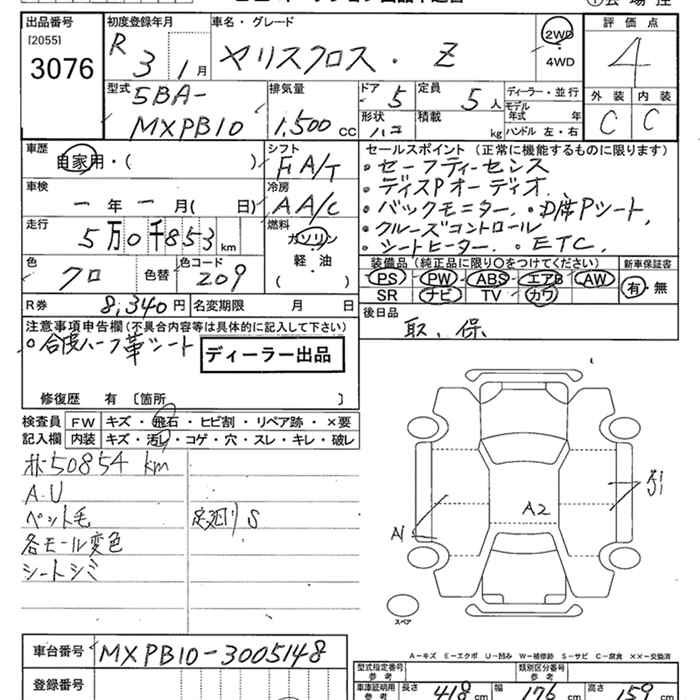 出品番号 初度登録年月 車名・グレード 2WD 評価点
[2055] R 3 1月 ヤリスクロス・Z ・ 4
3076 4WD
型式 排気量 ドア 定員 ディーラー・並行 外装 内装
5BA- 5 5人 モデル年式 年 C C
MXPB10 1,500cc 形状 積載 kg ハンドル 左・右
車歴 シフト セールスポイント(正常に機能するものに限ります)
自家用・( ) FA/T ・セーフティーセンス
車検 冷房 ・ディスPオーディオ
ー年ー月( 日) AA/C ・バックモニター ・D席Pシート
走行 燃料 ・クルーズコントロール
5万0千853km ガソリン ・シートヒーター ・ETC
色 色替 色コード 軽・油 装備品(純正品に限り○をつけてください) 新車保証書
クロ 209 ( ) PS PW ABS エアB AW 有・無
SR ナビ TV カワ
R券 8,340円 名変期限 月 日 後日品
注意事項申告欄(不具合内容等は具体的に記入して下さい) 取、保
○合皮ハーフ革シート ディーラー出品
修復歴 有〔箇所 〕
検査員 FW キズ・飛石・ヒビ割・リペア跡・×要
記入欄 内装 キズ・汚レ・コゲ・穴・スレ・キレ・破レ
50854km
A.U
ペット毛 足廻りS
各モール変色
シートシミ
A2
A1
スペア
A-キズ E-エクボ U-凹み W-補修跡 S-サビ C-腐食 ××-交換済
車台番号 MXPB10-3005148
型式指定番号 参考 類別区分番号 参考
登録番号
車庫証明用 参考 長さ 418cm 幅 176cm 高さ 159cm